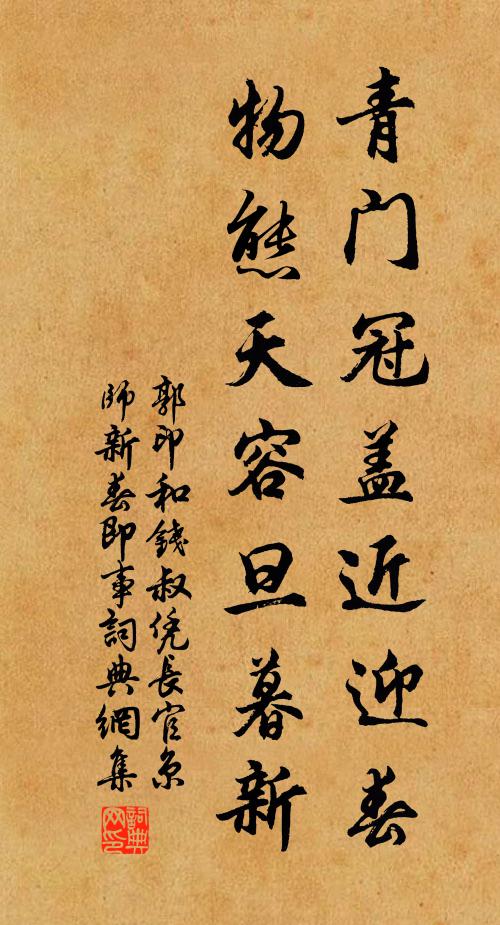 青门冠盖近迎春
物态天容旦暮新
郭印和錢叔凭長官京
師新春即事詞典網集
詞典网印